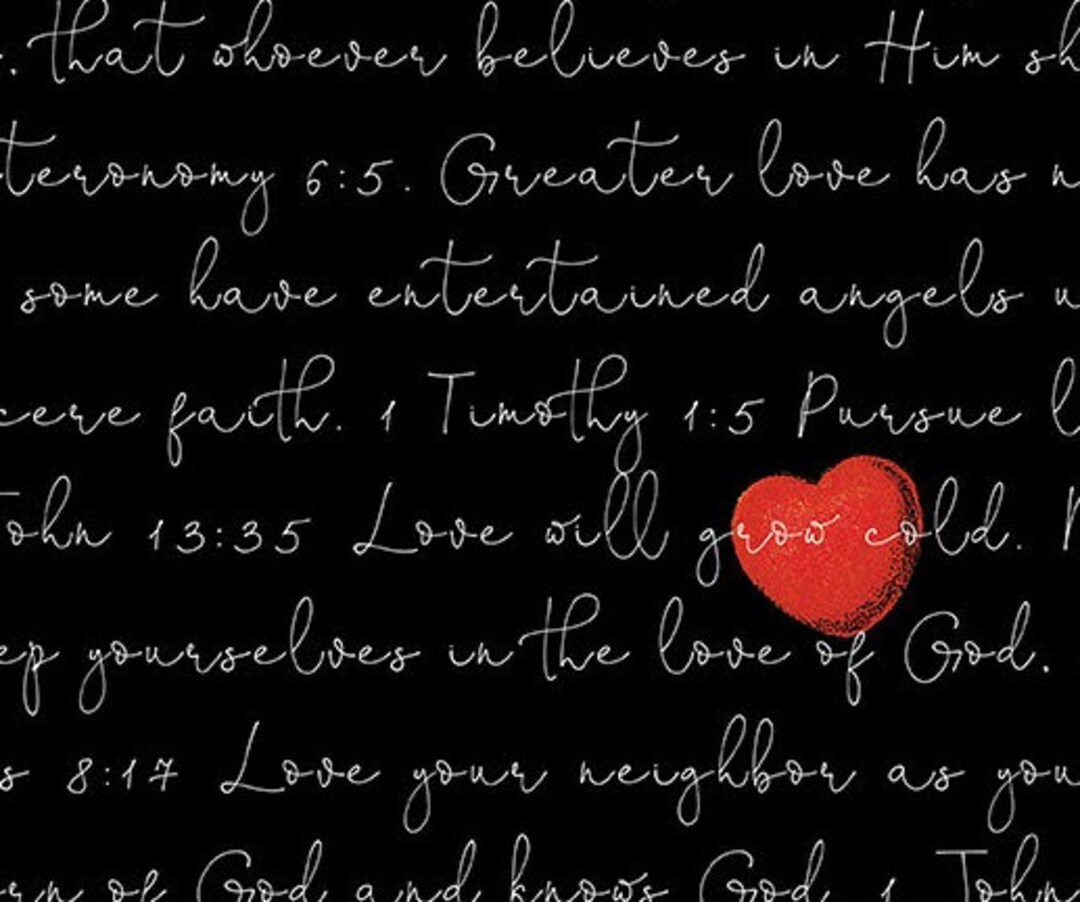 . that whoever believes in Him sh
teronomy 6:5. Greater love has n
some have entertained angels u
cere faith. 1 Timothy 1:5 Pursue l
ohn 13:35 Love will grow cold.
ep yourselves in the love of God.
s 8:17 Love your neighbor as you
rn of God and knows God. 1 John